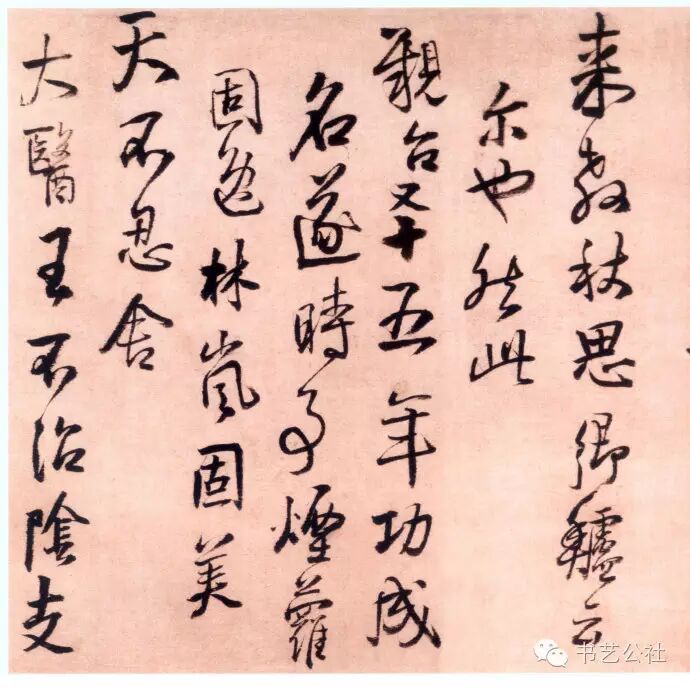 来教秋思鄉鱸云
尔也然此
又十五年功成
名遂時煙蘿
固逸林嵐固美
天不忍舍
大醫王不治陰支
书艺公社